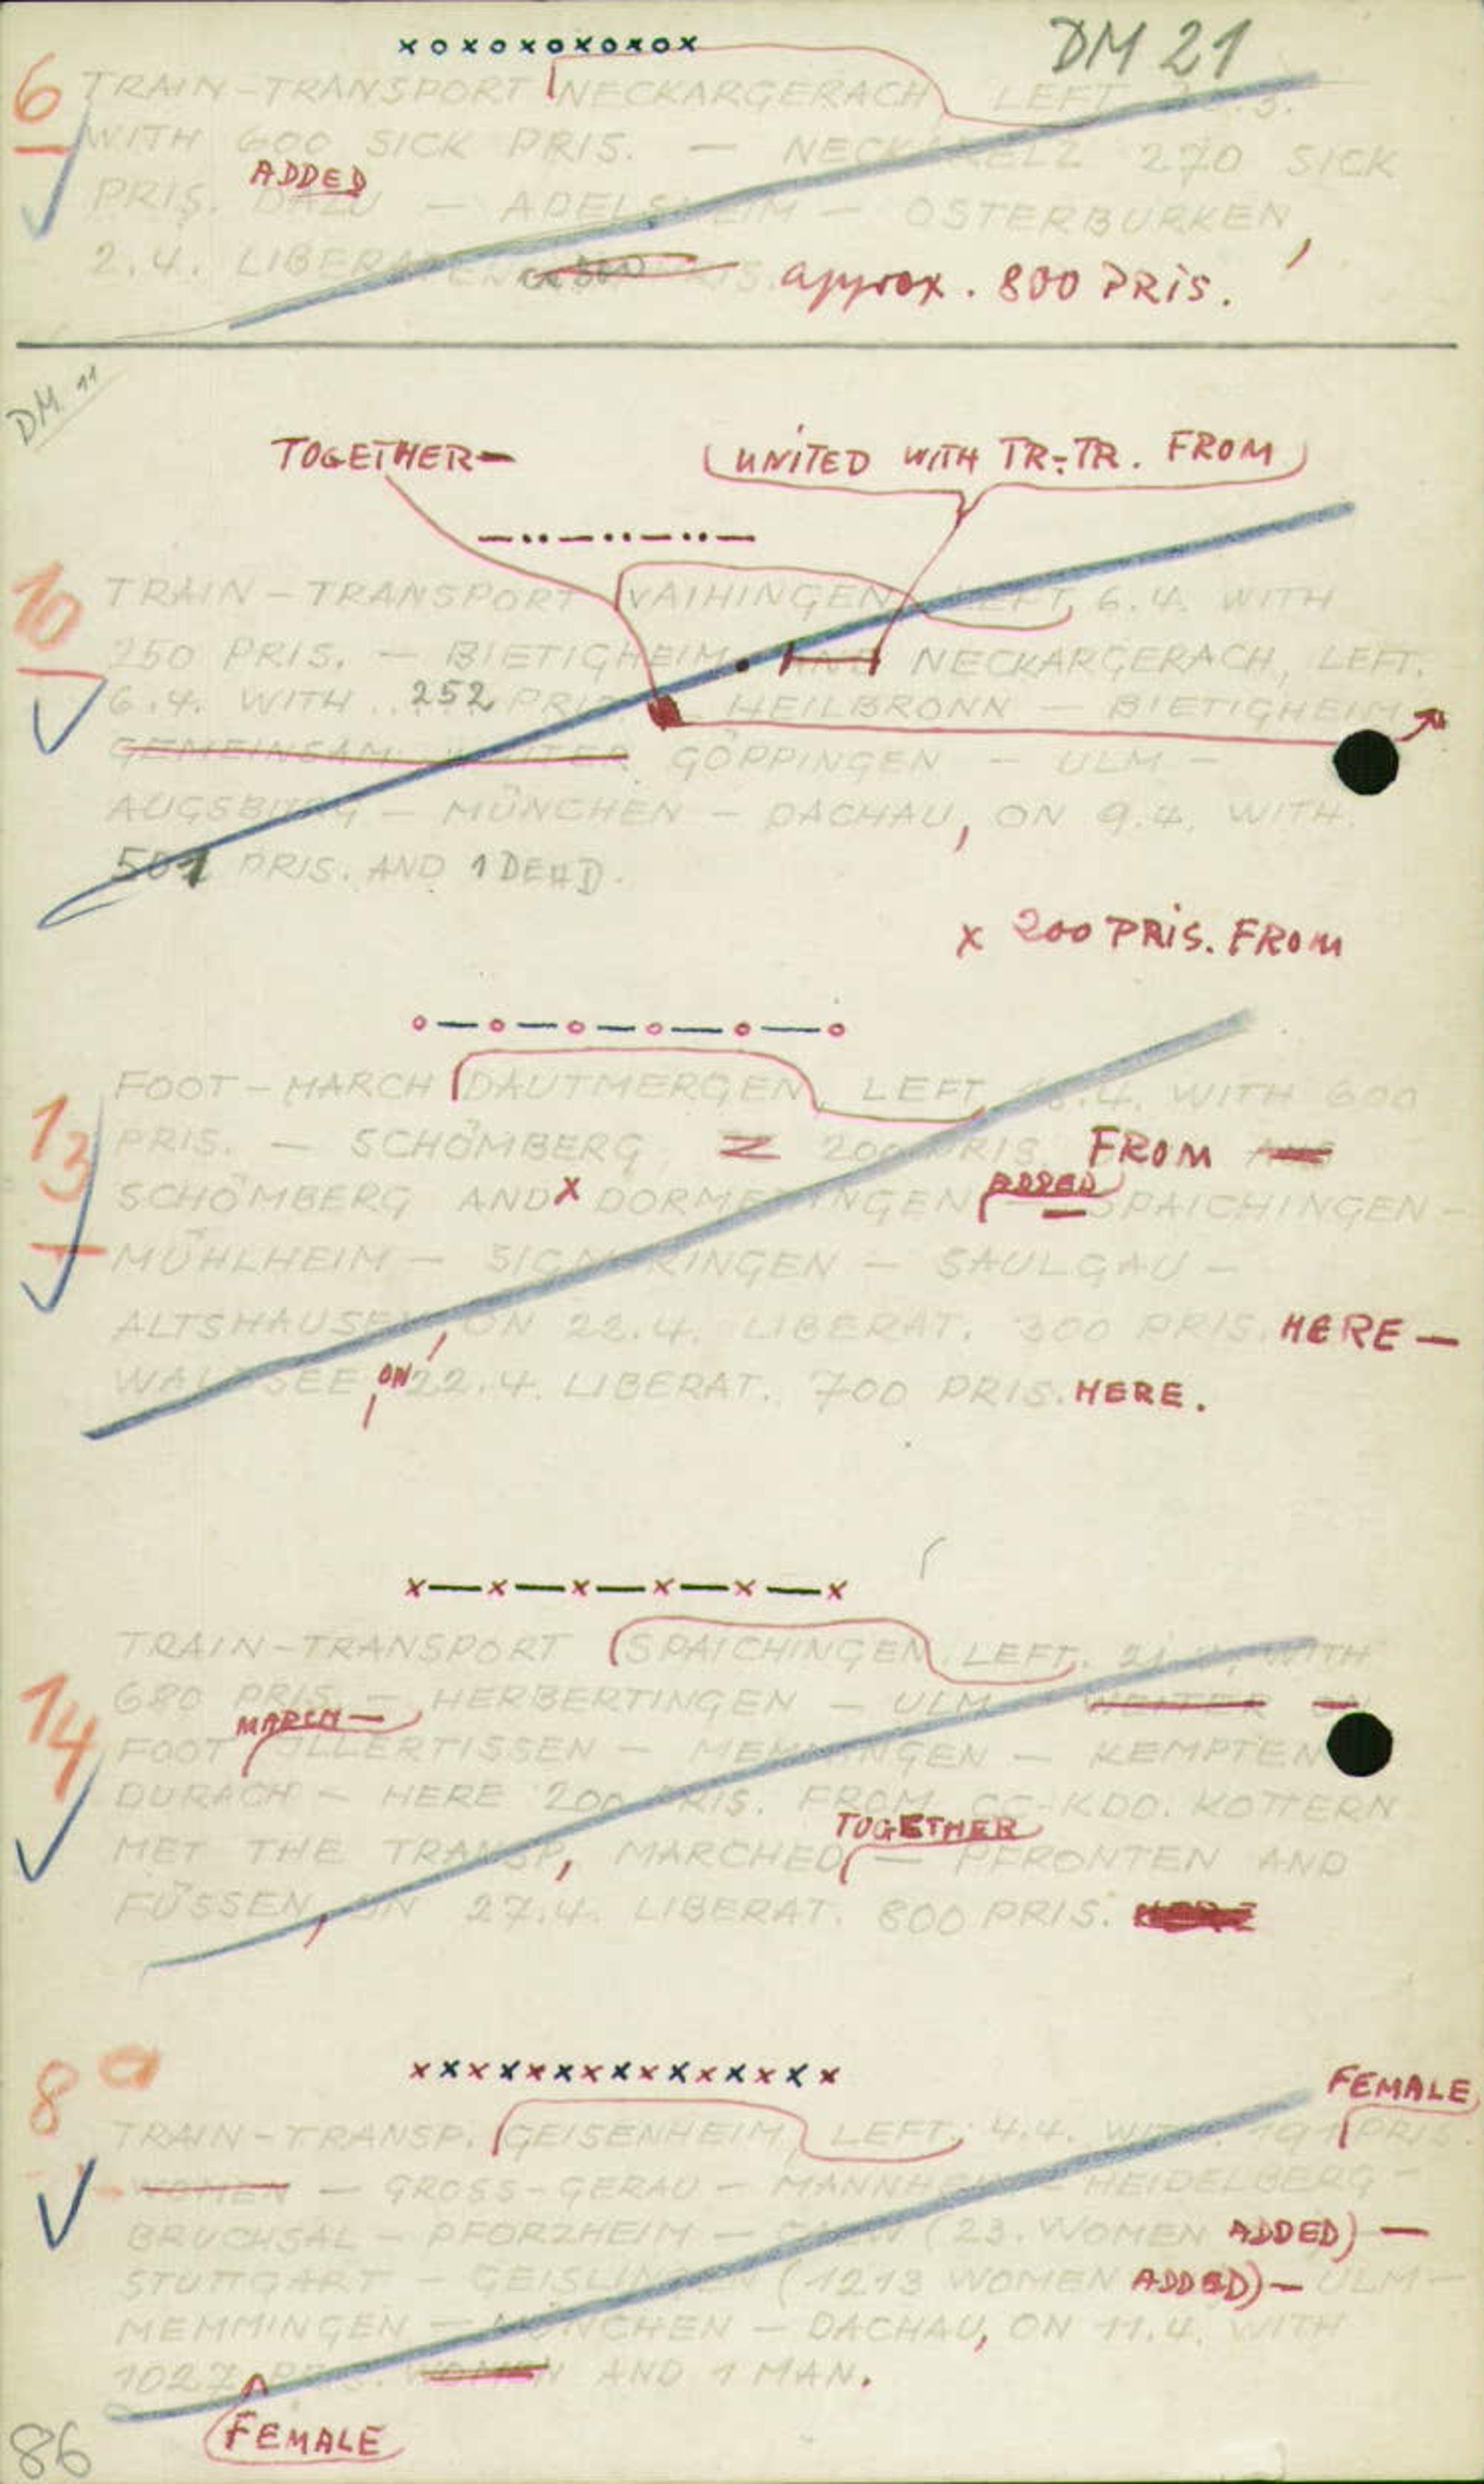 xoxoxoxoxox
DM 21
6
TRAIN-TRANSPORT NECKARGERACH LEFT
WITH 600 SICK PRIS. — NECKARELZ 270 SICK
ADDED
PRIS. DAZU — ADELSHEIM — OSTERBURKEN,
2.4. approx. 800 PRIS.
DM 11
TOGETHER— UNITED WITH TR-TR. FROM
—··—··—··—
10
TRAIN-TRANSPORT VAIHINGEN, LEFT, 6.4. WITH
250 PRIS. — BIETIGHEIM. AND NECKARGERACH, LEFT.
6.4. WITH .. 252 PRIS. HEILBRONN — BIETIGHEIM
GEMEINSAM WEITER GÖPPINGEN — ULM —
AUGSBURG — MÜNCHEN — DACHAU, ON 9.4. WITH.
501 PRIS. AND 1 DEAD.
x 200 PRIS. FROM
o—o—o—o—o—o
13
FOOT-MARCH DAUTMERGEN, LEFT, WITH 600
PRIS. — SCHÖMBERG, 200 PRIS. FROM AUS
ADDED
SCHÖMBERG AND x DORMETTINGEN — SPAICHINGEN —
MÜHLHEIM — SIGMARINGEN — SAULGAU —
ALTSHAUSEN, ON 22.4. LIBERAT. 300 PRIS. HERE —
WALDSEE, ON 22.4. LIBERAT. 700 PRIS. HERE.
x—x—x—x—x—x
14
TRAIN-TRANSPORT SPAICHINGEN, LEFT. WITH
680 PRIS. — HERBERTINGEN — ULM — WEITER
MARCH —
FOOT ILLERTISSEN — MEMMINGEN — KEMPTEN
DURACH — HERE 200 PRIS. FROM CC-KDO. KOTTERN
TOGETHER
MET THE TRANSP, MARCHED — PFRONTEN AND
FÜSSEN, ON 27.4. LIBERAT. 800 PRIS. HERE
xxxxxxxxxxxxxxx
8a
FEMALE
TRAIN-TRANSP. GEISENHEIM, LEFT. 4.4. WITH 191 PRIS.
WOMEN — GROSS-GERAU — MANNHEIM — HEIDELBERG —
BRUCHSAL — PFORZHEIM — CALW (23. WOMEN ADDED) —
STUTTGART — GEISLINGEN (1213 WOMEN ADDED) — ULM —
MEMMINGEN — MÜNCHEN — DACHAU, ON 11.4. WITH
1027 PRIS. WOMEN AND 1 MAN.
FEMALE
86